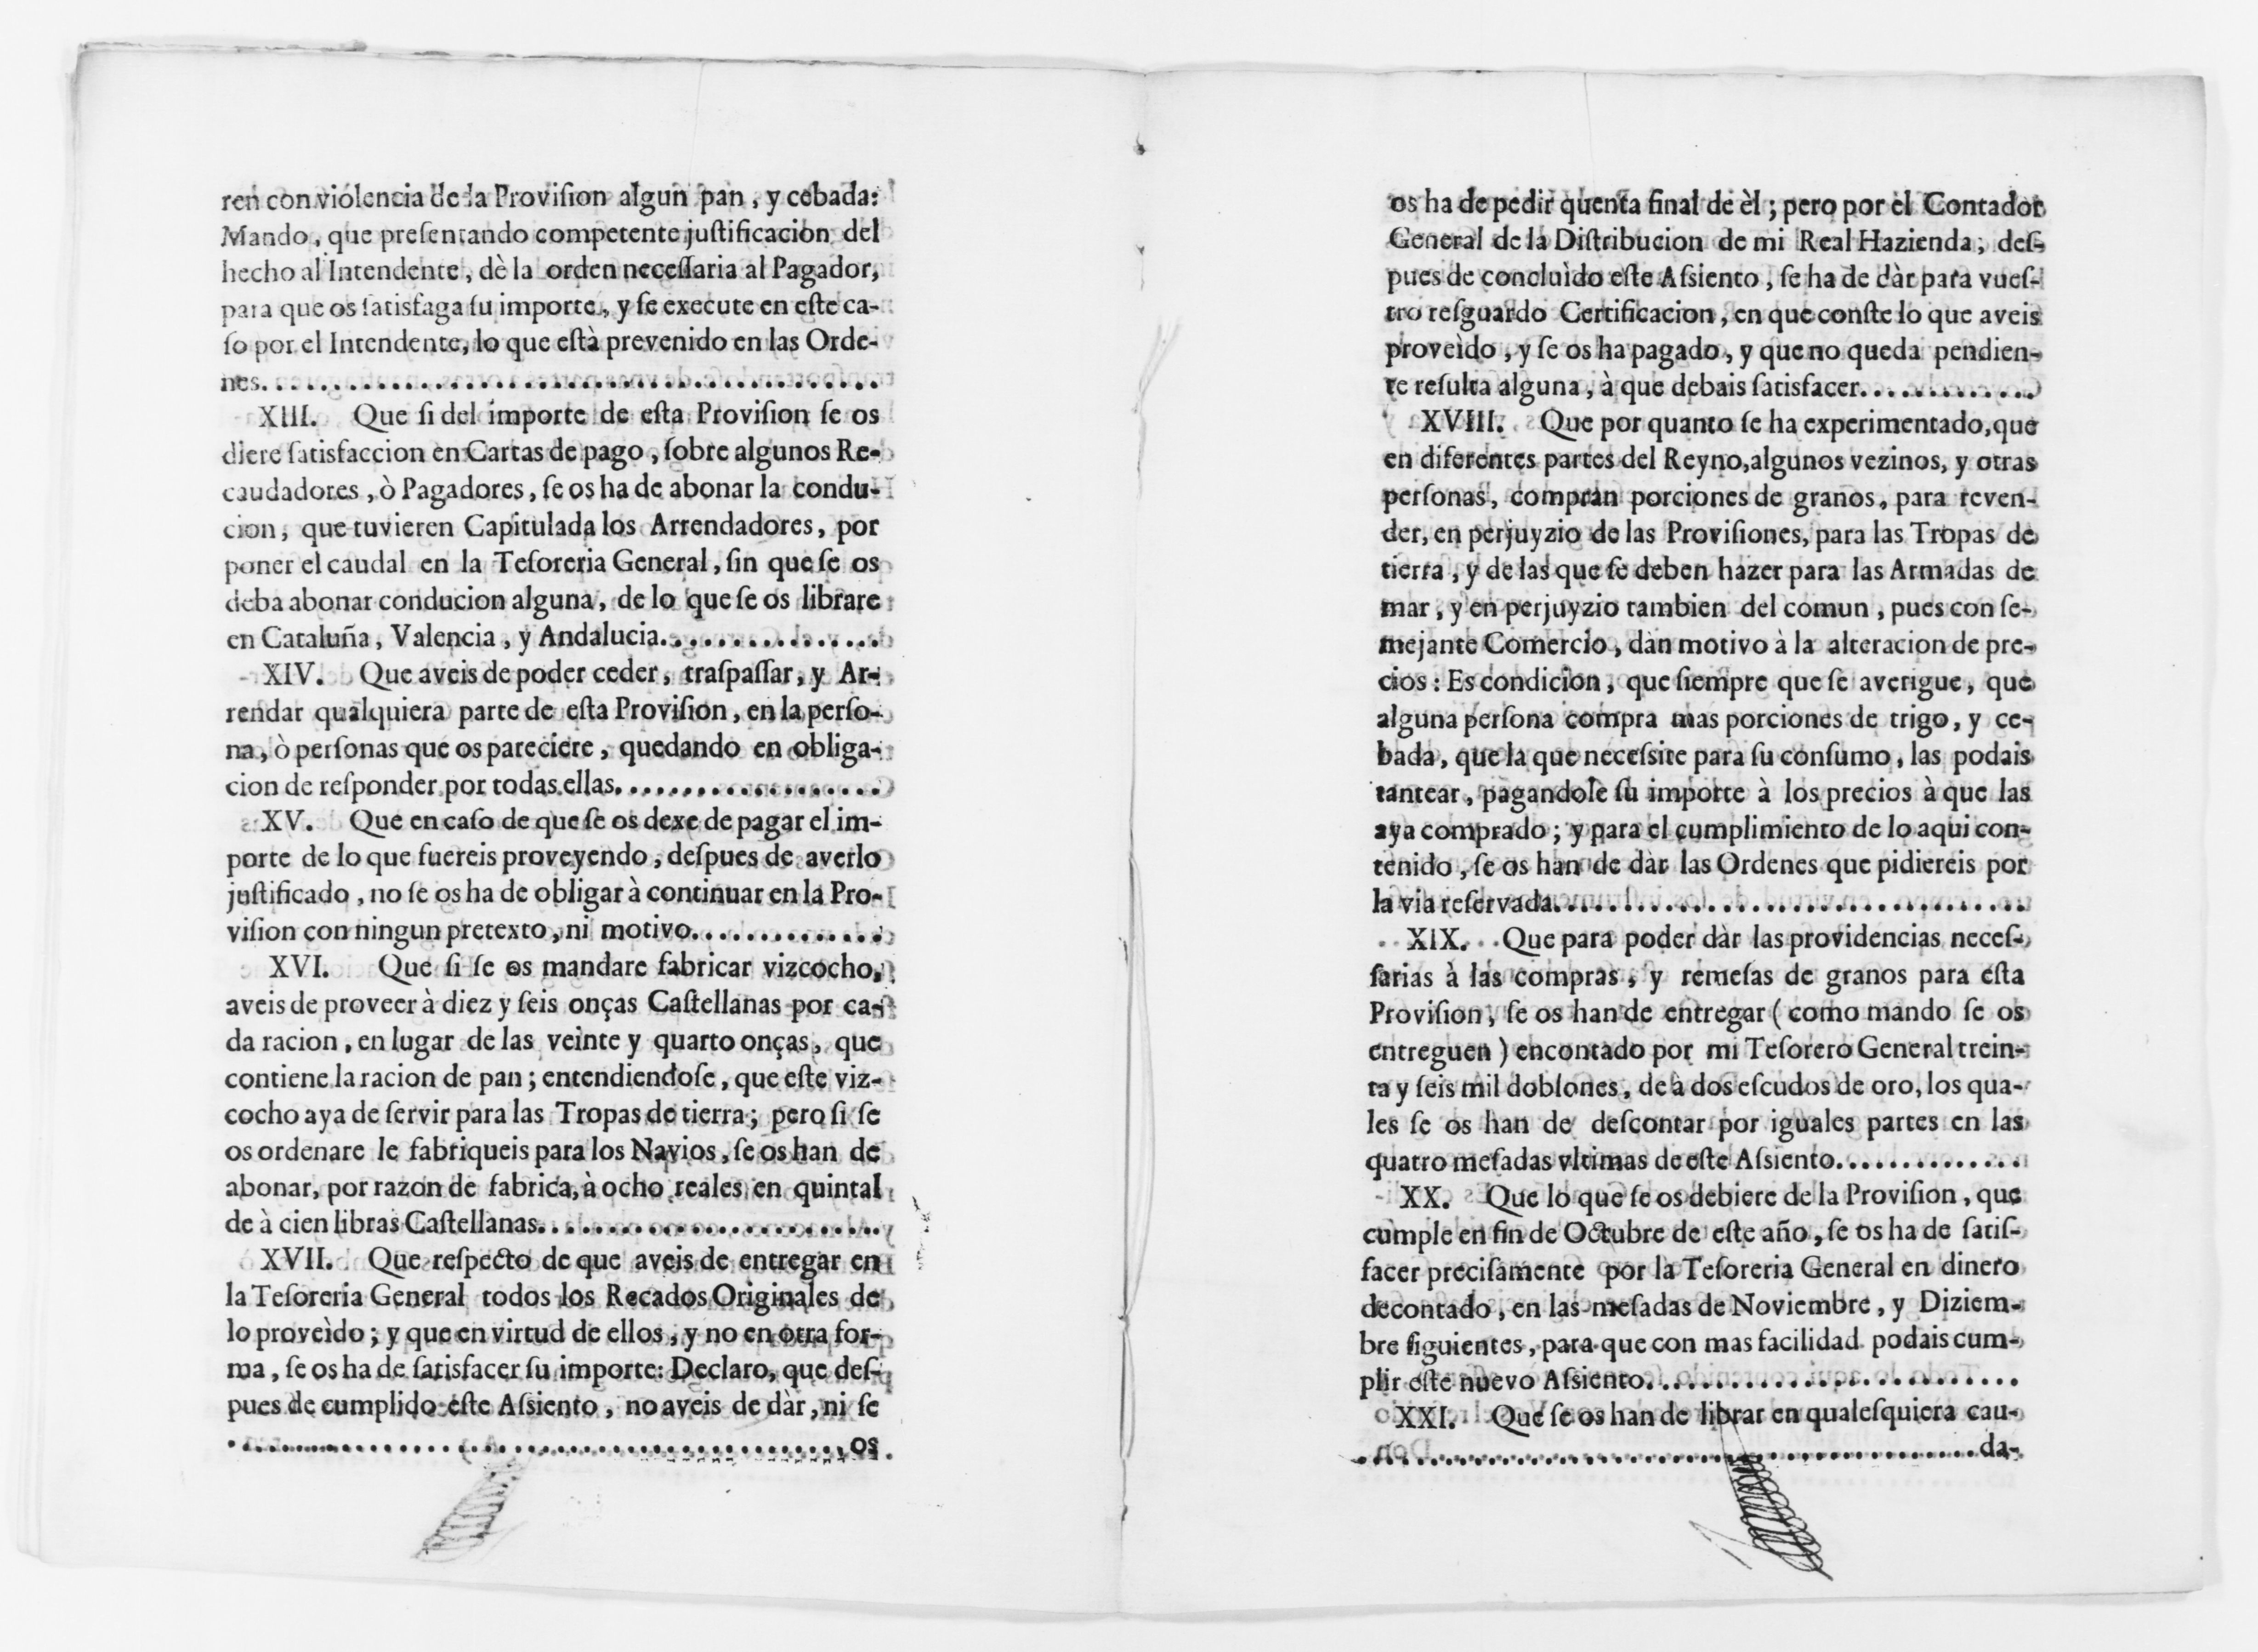 ren con violencia de la Proviſion algun pan, y cebada:
Mando, que preſentando competente juſtificacion del
hecho al Intendente, dè la orden neceſſaria al Pagador,
para que os ſatisfaga ſu importe, y ſe execute en eſte ca-
ſo por el Intendente, lo que eſtà prevenido en las Orde-
nes.
XIII. Que ſi del importe de eſta Proviſion ſe os
diere ſatisfaccion en Cartas de pago, ſobre algunos Re-
caudadores, ò Pagadores, ſe os ha de abonar la condu-
cion, que tuvieren Capitulada los Arrendadores, por
poner el caudal en la Teſoreria General, ſin que ſe os
deba abonar conducion alguna, de lo que ſe os librare
en Cataluña, Valencia, y Andalucia.
XIV. Que aveis de poder ceder, traſpaſſar, y Ar-
rendar qualquiera parte de eſta Proviſion, en la perſo-
na, ò perſonas que os pareciere, quedando en obliga-
cion de reſponder por todas ellas.
XV. Que en caſo de que ſe os dexe de pagar el im-
porte de lo que fuereis proveyendo, deſpues de averlo
juſtificado, no ſe os ha de obligar à continuar en la Pro-
viſion con ningun pretexto, ni motivo.
XVI. Que ſi ſe os mandare fabricar vizcocho,
aveis de proveer à diez y ſeis onças Caſtellanas por ca-
da racion, en lugar de las veinte y quarto onças, que
contiene la racion de pan; entendiendoſe, que eſte viz-
cocho aya de ſervir para las Tropas de tierra; pero ſi ſe
os ordenare le fabriqueis para los Navios, ſe os han de
abonar, por razon de fabrica, à ocho reales en quintal
de à cien libras Caſtellanas.
XVII. Que reſpecto de que aveis de entregar en
la Teſoreria General todos los Recados Originales de
lo proveìdo; y que en virtud de ellos, y no en otra for-
ma, ſe os ha de ſatisfacer ſu importe: Declaro, que deſ-
pues de cumplido eſte Aſsiento, no aveis de dàr, ni ſe
os
os ha de pedir quenta final de èl; pero por el Contador
General de la Diſtribucion de mi Real Hazienda, deſ-
pues de concluìdo eſte Aſsiento, ſe ha de dàr para vueſ-
tro reſguardo Certificacion, en que conſte lo que aveis
proveìdo, y ſe os ha pagado, y que no queda pendien-
te reſulta alguna, à que debais ſatisfacer.
XVIII. Que por quanto ſe ha experimentado, que
en diferentes partes del Reyno, algunos vezinos, y otras
perſonas, compran porciones de granos, para reven-
der, en perjuyzio de las Proviſiones, para las Tropas de
tierra, y de las que ſe deben hazer para las Armadas de
mar, y en perjuyzio tambien del comun, pues con ſe-
mejante Comercio, dàn motivo à la alteracion de pre-
cios: Es condicion, que ſiempre que ſe averigue, que
alguna perſona compra mas porciones de trigo, y ce-
bada, que la que neceſsite para ſu conſumo, las podais
tantear, pagandole ſu importe à los precios à que las
aya comprado; y para el cumplimiento de lo aqui con-
tenido, ſe os han de dàr las Ordenes que pidiereis por
la via reſervada.
XIX. Que para poder dàr las providencias neceſ-
ſarias à las compras, y remeſas de granos para eſta
Proviſion, ſe os han de entregar ( como mando ſe os
entreguen ) encontado por mi Teſorero General trein-
ta y ſeis mil doblones, de à dos eſcudos de oro, los qua-
les ſe os han de deſcontar por iguales partes en las
quatro meſadas vltimas de eſte Aſsiento.
XX. Que lo que ſe os debiere de la Proviſion, que
cumple en fin de Octubre de eſte año, ſe os ha de ſatiſ-
facer preciſamente por la Teſoreria General en dinero
decontado, en las meſadas de Noviembre, y Diziem-
bre ſiguientes, para que con mas facilidad podais cum-
plir eſte nuevo Aſsiento.
XXI. Que ſe os han de librar en qualeſquiera cau-
da-